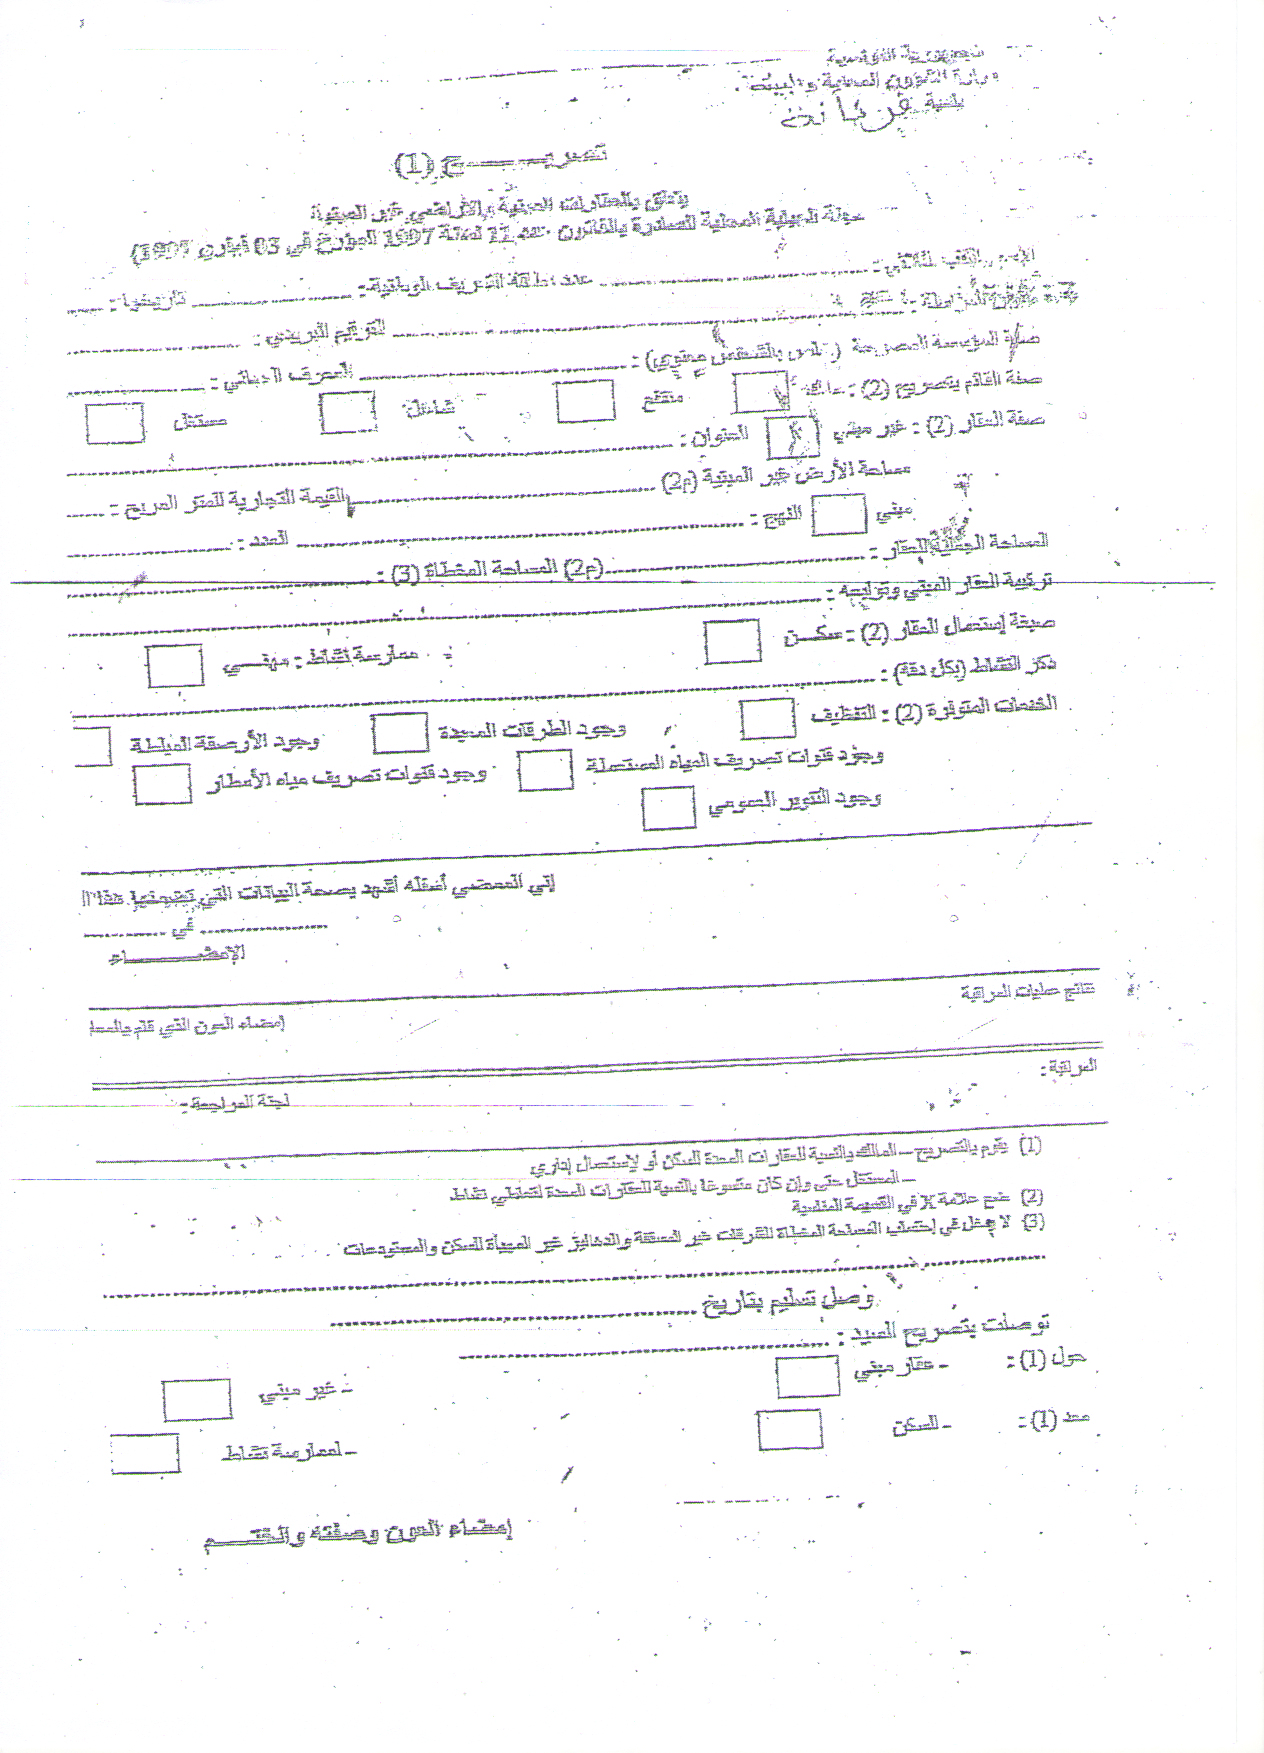 الجمهورية التونسية
وزارة الشؤون المحلية والبيئة
بلدية
تصريـــــح (1)
يتعلق بالعقارات المبنية والأراضي غير المبنية
مجلة الجباية المحلية الصادرة بالقانون عدد 11 لسنة 1997 المؤرخ في 03 فيفري 1997)
الإسم واللقب الثلاثي : عدد بطاقة التعريف الوطنية : تاريخها :
الترقيم البريدي :
صفة المؤسسة المصرحة (خاص بالشخص معنوي) : المعرف الجبائي :
صفة القائم بتصريح (2) : مالك منتفع شاغل مستغل
صفة العقار (2) : غير مبني العنوان :
مساحة الأرض غير المبنية (م2) القيمة التجارية للمتر المربع :
مبني النهج : العدد :
المساحة الجملية للعقار : (م2) المساحة المغطاة (3) :
تركيبة العقار المبني وتوابعه :
صبغة إستعمال العقار (2) : سكـن ممارسة نشاط : مهنـي
ذكر النشاط (بكل دقة) :
الخدمات المتوفرة (2) : التنظيف وجود الطرقات المعبدة وجود الأرصفة المبلطة
وجود قنوات تصريف المياه المستعملة وجود قنوات تصريف مياه الأمطار
وجود التنوير العمومي
إني الممضي أسفله أشهد بصحة البيانات التي تضمنها هذا
في
الإمضـــــاء
نتائج عمليات المراقبة
إمضاء العون الذي قام
المراقبة :
لجنة المراجعة :
(1) يقوم بالتصريح – المالك بالنسبة للعقارات المعدة للسكن أو لإستعمال إداري
– المستغل حتى وإن كان متسوغا بالنسبة للعقارات المعدة لتعاطي نشاط
(2) ضع علامة X في القسيمة المناسبة
(3) لا يدخل في إحتساب المساحة المغطاة للشرفات غير المسقفة والدهاليز غير المهيأة للسكن والمستودعات
وصل تسليم بتاريخ
توصلت بتصريح السيد :
حول (1) : – عقار مبني – غير مبني
معد (1) : – للسكن – لممارسة نشاط
إمضاء العون وصفته والختـــم